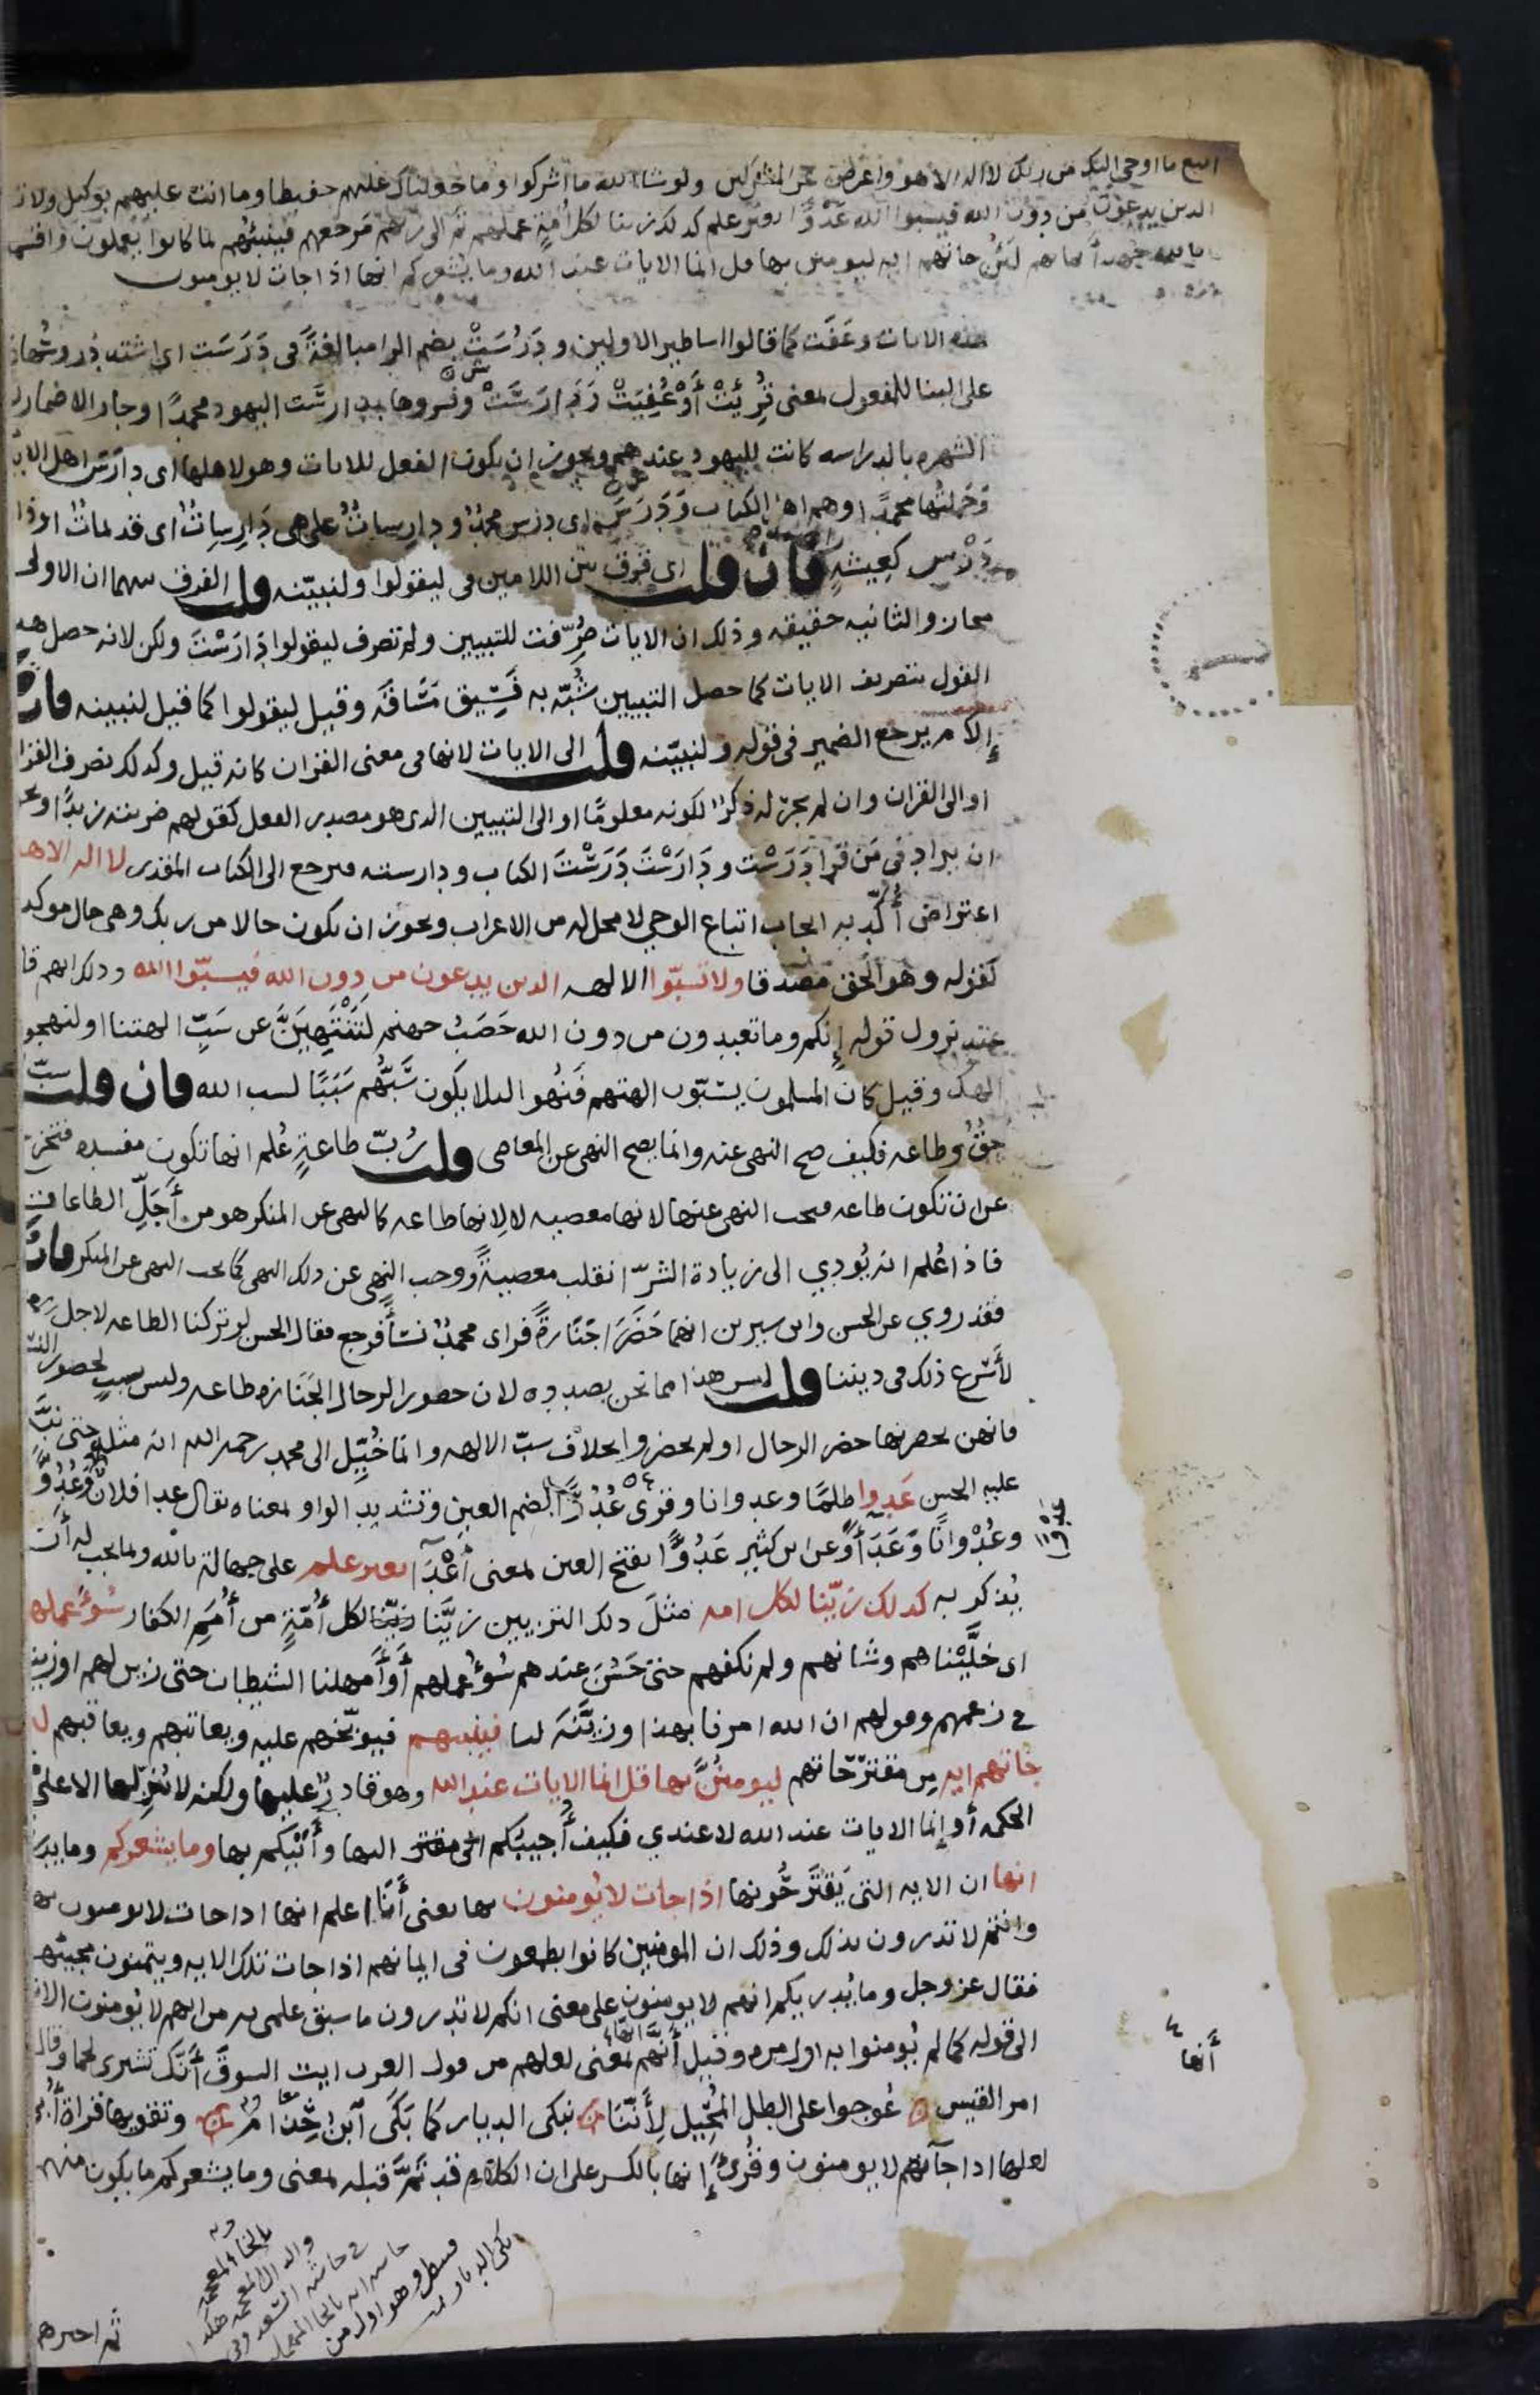 اتبع ما اوحي اليك من ربك لا اله الا هو واعرض عن المشركين ولو شا الله ما اشركوا وما جعلناك عليهم حفيظا وما انت عليهم بوكيل ولا
الذين يدعون من دون الله فيسبوا الله عَدْوًا بغير علم كذلك زينا لكل اُمةٍ عملهم ثم الى ربهم مَرجعهم فينبئهم بما كانوا يعملون واقسموا
بالله جهد أيمانهم لَئن جاتهم ايه ليومنن بها قل انما الايات عند الله وما يشعركم انها اذا جات لا يومنون
هذه الايات وعَفَت كما قالوا اساطير الاولين ودَرُسَتْ بضم الرا مبالغةً في دَرَسَت اي اشتد دُروسُها
على البنا للمفعول بمعنى قُرِئَتْ أَوْ عُفِيَتْ ودَارَسَتْ وفسروها بدارسَت اليهود محمدًا وجاز الاضمار
الشهره بالدراسه كانت لليهود عندهم ويجوز ان يكون الفعل للايات وهو لاهلها اى دارَسَ اهل
وَحَمَلتُها محمدًا وهم اهل الكتاب وَدَرَسَ اى درس محمدٌ ودارِساتٌ على هى دَارِسِاتٌ اى قديماتٌ او
دَرْسٍ كعِيشَةٍ فان قلت اى فرق بين اللامين فى ليقولوا ولنبيّنه قلت الفرق بينهما ان الاولى
مجاز والثانيه حقيقه وذلك ان الايات صُرِّفت للتبيين ولم تصرف ليقولوا دَارَسْتَ ولكن لانه حصل هذ
القول بتصريف الايات كما حصل التبيين شُبّه به فَسِيق مَسَاقَه وقيل ليقولوا كما قيل لنبينه فان
إلامَ يرجع الضمير فى قوله ولنبيّنه قلت الى الايات لانها فى معنى القران كانه قيل وكذلك نصرف القرا
او الى القران وان لم يجرِ له ذكرٌ لكونه معلومًا او الى التبيين الذى هو مصدر الفعل كقولهم ضربته زيدًا
ان يراد فى مَن قرا دَرَسْت ودَارَسْتَ دَرَسْتَ الكتاب ودارسته فيرجع الى الكتاب المقدر لا اله الا هو
اعتراض أُكّد به ايجاب اتباع الوحي لا محل له من الاعراب ويجوز ان يكون حالا من ربك وهى حال موكد
كقوله وهو الحق مصدقا ولا تسبّوا الالهه الذين يدعون من دون الله فيسبّوا الله وذلك انهم قا
عند نزول قوله إنكم وما تعبدون من دون الله حَصَبُ جهنم لَتَنْتَهِيَنَّ عن سَبِّ الهتنا او لنهجو
الهك وقيل كان المسلمون يسبّون الهتهم فَنُهُوا لئلا يكون سَبُّهُم سَبَبًا لسب الله فان قلت سبّ
حقٌ وطاعه فكيف صح النهى عنه وانما يصح النهى عن المعاصى قلت رُبّ طاعةٍ عُلم انها تكون مفسده فتخرج
عن ان تكون طاعه فيجب النهى عنها لانها معصيه لا لِانها طاعه كالنهى عن المنكر هو من أَجَلِّ الطاعات
فاذا عُلم انه يُودي الى زيادة الشرّ انقلب معصيةً ووجب النهى عن ذلك النهى كما يجب النهى عن المنكر فان
فقد روي عن الحسن وابن سيرين انهما حَضَرَا جَنَازةً فراى محمدٌ نساً فرجع فقال الحسن لو تركنا الطاعه لاجل
لأَسْرع ذلك فى ديننا قلت ليس هذا مما نحن بصدده لان حضور الرجال الجَنَازه طاعه وليس بسببٍ لحضور
فانهن يحضرنها حضر الرجال او لم يحضروا بخلاف سبّ الالهه وانما خُيِّل الى محمد رحمه الله انه مثله حتى
عليه الحسن عَدوا ظلمًا وعدوانا وقرى عُدُوًّا بضم العين وتشديد الواو بمعناه يقال عدا فلان
وعُدْوانًا وَعَدَأً وعن ابن كثير عَدُوًّا بفتح العين بمعنى أعْدَآ بغير علم على جهالة بالله وبما يجب له أن
يُذكر به كذلك زيّنا لكل امه مثلَ ذلك التزيين زيَّنا لكل أُمّةٍ من أُمَمِ الكفار سُوءَ عملهم
اى خلَّيْناهم وشانهم ولم نكفهم حتى حَسُنَ عندهم سُوءُ عملهم أَوْ أَمهلنا الشيطان حتى زين لهم او زيناه
فى زعمهم وقولهم ان الله امرنا بهذا وزيَّنَهُ لنا فينبئهم فيوبّخهم عليه ويعاتبهم ويعاقبهم
جاتهم ايه من مقترَحاتهم ليومنُنَّ بها قل انما الايات عند الله وهو قادر عليها ولكنه لا يُنزِّلها الا على
الحكمه أو إنما الايات عند الله لا عندي فكيف أُجيبُكم اليها وأَتيكم بها وما يشعركم وما
انها ان الايه التى يَقْتَرحُونها اذا جات لا يُومنون بها يعنى أَنَا اعلم انها اذا جات لا يومنون بها
وانتم لا تدرون بذلك وذلك ان المومنين كانوا يطمعون فى ايمانهم اذا جات تلك الايه ويتمنون مجيئها
فقال عز وجل وما يُدريكم انهم لا يومنون على معنى انكم لا تدرون ما سبق علمى به من انهم لا يُومنون
الى قوله كما لم يُومنوا به اول مره وقيل أَنَّها بمعنى لعلهم من قول العرب ايت السوقَ أَنَّك تشترى لحما وقال
امر القيس عُوجوا على الطلل المُحِيل لِأَنّنا نبكى الديار كما بَكَى آبنُ خِذَامِ وتقويها قراةُ أُبى
لعلها اذا جآتهم لا يومنون وقُرئ إنها بالكسر على ان الكلام قد تمَّ قبله بمعنى وما يشعركم ما يكون منهم
أنها
ثم اخبرهم